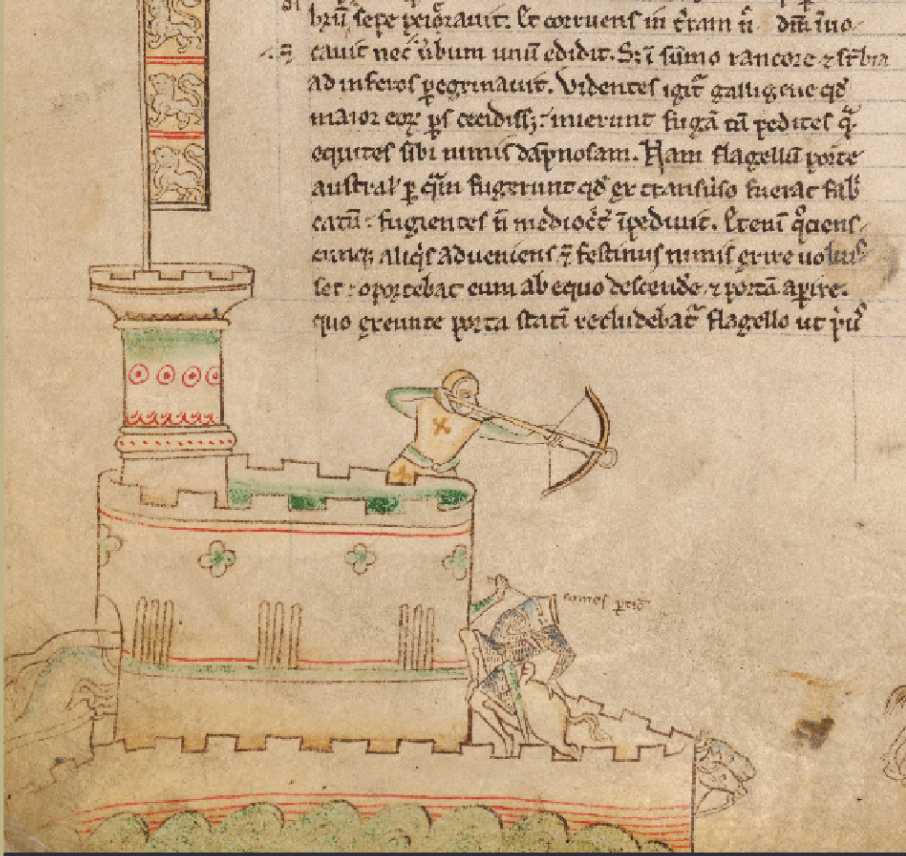 brū sepe peiorauit. Et corruens in t̄ram n̄ dm̄ īuo-
cauit nec ūbum unū edidit. S; ī sūmo rancore ⁊ suꝑbia
ad inferos ꝑegrinauit. Videntes igit᷑ galligene qd̄
maior eoꝝ ꝑs cecidiss;: inierunt fugā tā pedites q̄̄
equites sibi nimis dāpnosam. Nam flagellū porte
austral' ꝑ quā fugerunt qd̄ ex transūso fuerat fab̄
catū: fugientes n̄ mediocr̄ īpediuit. Eteni qͦciens-
cunq; aliqͥs adueniens ⁊ festinus nimis exire uoluis
set: oportebat eum ab equo descende ⁊ portā apire.
quo exeunte porta statī recludebat᷑ flagello ut pͥus
comes ꝑtic̄